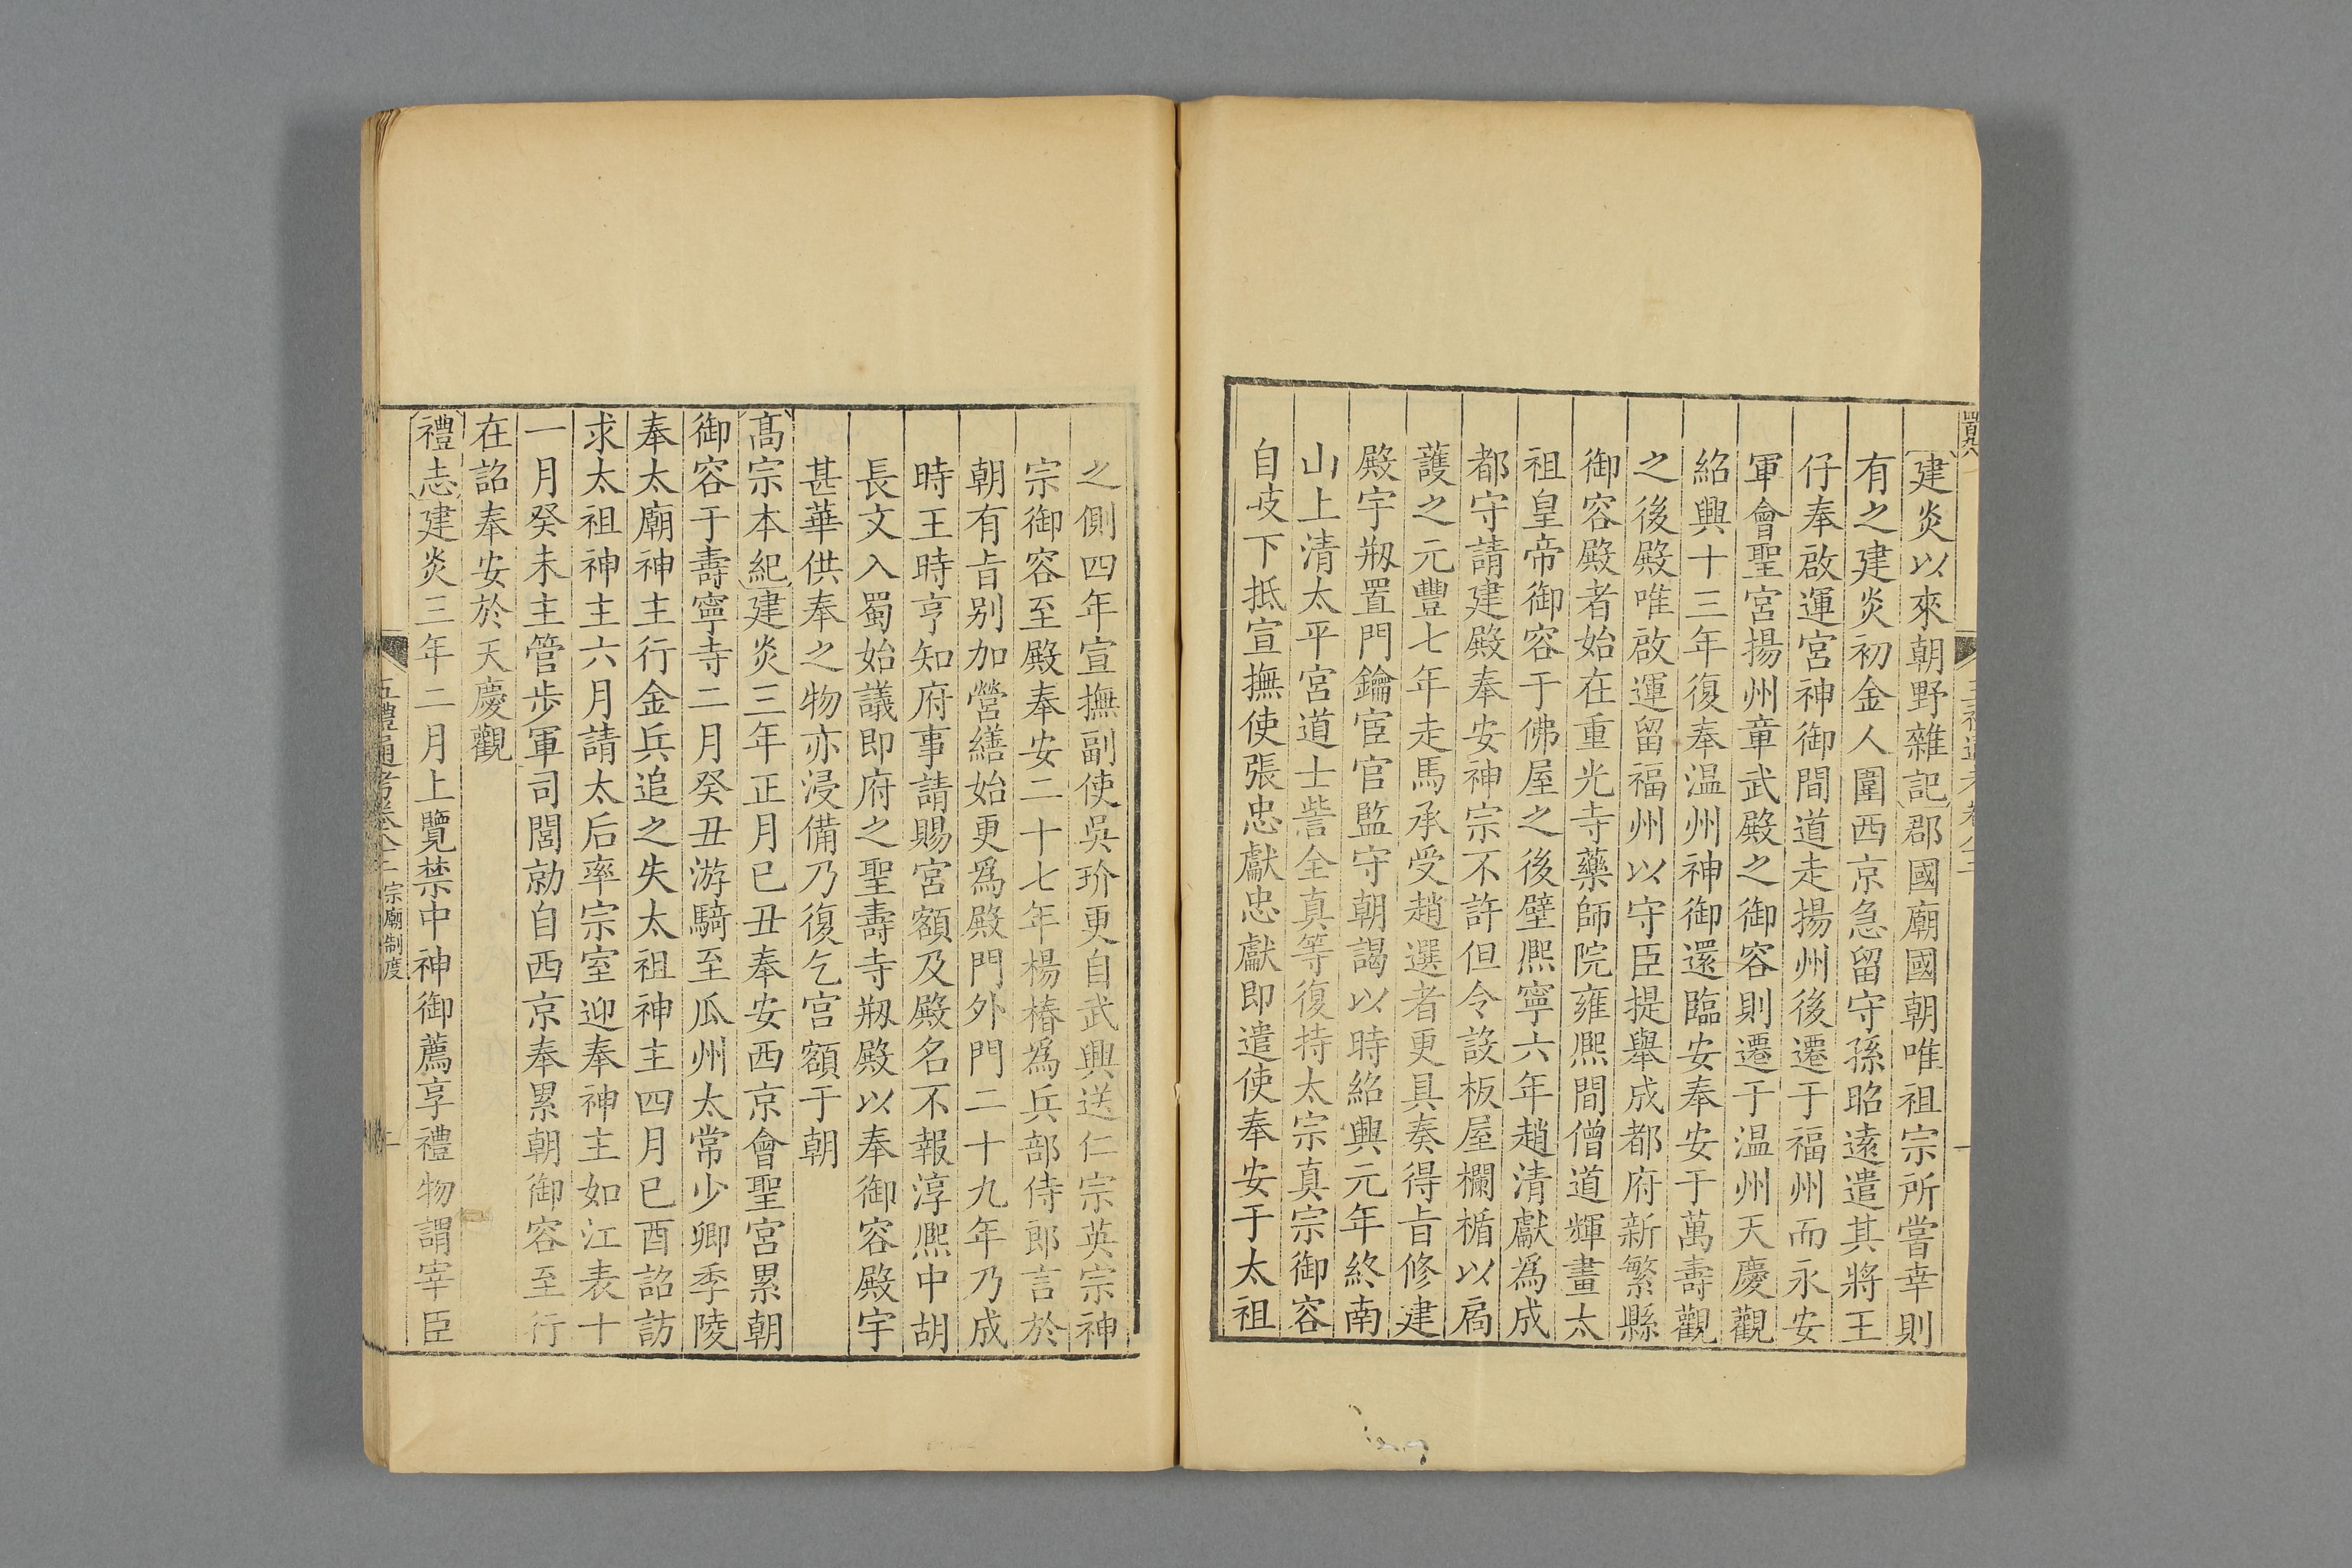 建炎以來朝野雜記郡國廟國朝唯祖宗所嘗幸則
有之建炎初金人圍西京急留守孫昭遠遣其將王
仔奉啟運宮神御間道走揚州後遷于福州而永安
軍會聖宮揚州章武殿之御容則遷于温州天慶觀
紹興十三年復奉温州神御還臨安奉安于萬壽觀
之後殿唯啟運留福州以守臣提舉成都府新繁縣
御容殿者始在重光寺藥師院雍熈間僧道輝畫太
祖皇帝御容于佛屋之後壁熈寧六年趙清獻爲成
都守請建殿奉安神宗不許但令設板屋欄楯以扃
護之元豐七年走馬承受趙選者更具奏得㫖修建
殿宇剏置門鑰宦官監守朝謁以時紹興元年終南
山上清太平宮道士訾全真等復持太宗真宗御容
自岐下抵宣撫使張忠獻忠獻即遣使奉安于太祖
之側四年宣撫副使吳玠更自武興送仁宗英宗神
宗御容至殿奉安二十七年楊椿爲兵部侍郎言於
朝有㫖别加營繕始更爲殿門外門二十九年乃成
時王時亨知府事請賜宮額及殿名不報淳熈中胡
長文入蜀始議即府之聖壽寺剏殿以奉御容殿宇
甚華供奉之物亦浸備乃復乞宮額于朝
髙宗本紀建炎三年正月己丑奉安西京會聖宮累朝
御容于壽寧寺二月癸丑游騎至瓜州太常少卿季陵
奉太廟神主行金兵追之失太祖神主四月己酉詔訪
求太祖神主六月請太后率宗室迎奉神主如江表十
一月癸未主管步軍司閭勍自西京奉累朝御容至行
在詔奉安於天慶觀
禮志建炎三年二月上覽禁中神御薦享禮物謂宰臣
五禮通考卷八十二 宗廟制度